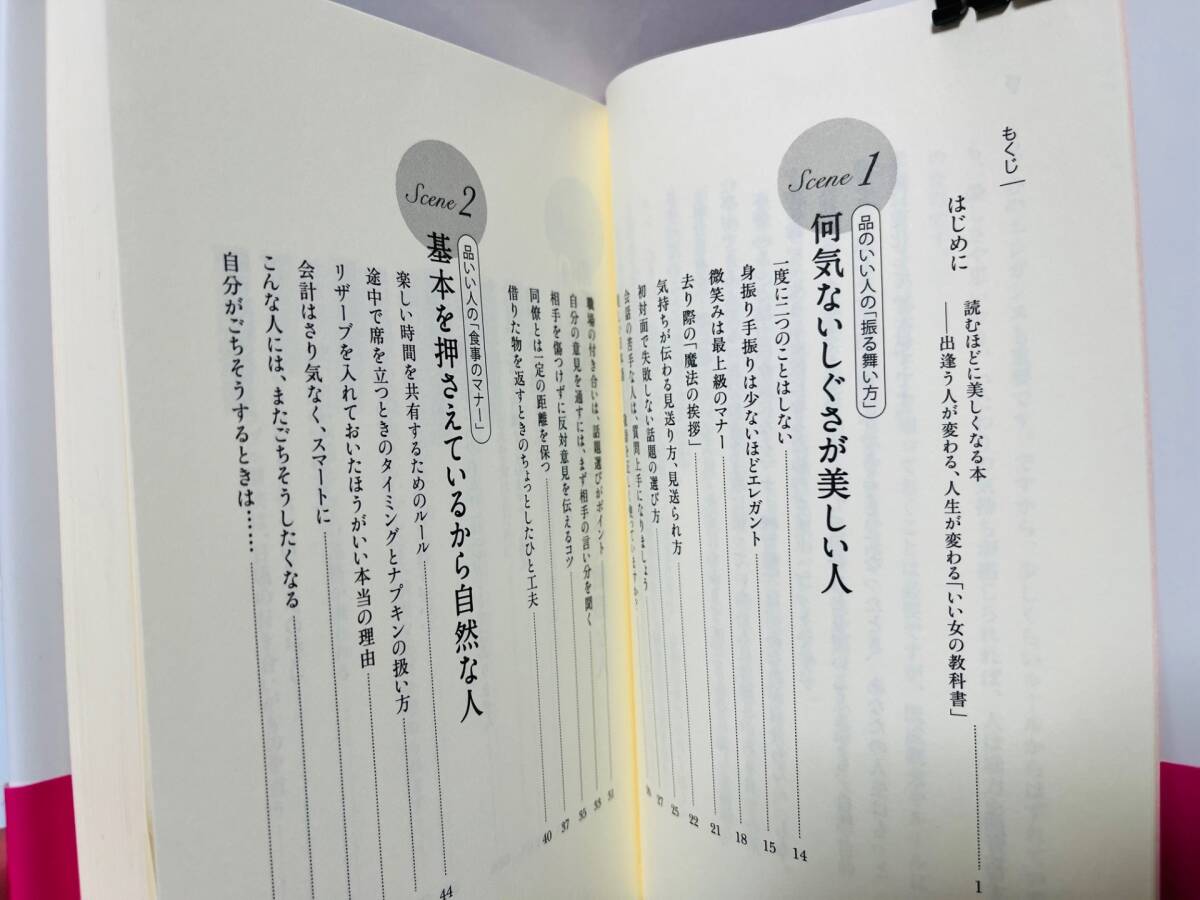 もくじ
はじめに
読むほどに美しくなる本
――出逢う人が変わる、人生が変わる「いい女の教科書」 1
Scene 1
品のいい人の「振る舞い方」
何気ないしぐさが美しい人
一度に二つのことはしない 14
身振り手振りは少ないほどエレガント 15
微笑みは最上級のマナー 18
去り際の「魔法の挨拶」 21
気持ちが伝わる見送り方、見送られ方 22
初対面で失敗しない話題の選び方 25
会話の苦手な人は、質問上手になりましょう 27
職場の付き合いは、話題選びがポイント 31
自分の意見を通すには、まず相手の言い分を聞く 33
相手を傷つけずに反対意見を伝えるコツ 35
同僚とは一定の距離を保つ 37
借りた物を返すときのちょっとしたひと工夫 40
Scene 2
品いい人の「食事のマナー」
基本を押さえているから自然な人
楽しい時間を共有するためのルール 44
途中で席を立つときのタイミングとナプキンの扱い方
リザーブを入れておいたほうがいい本当の理由
会計はさり気なく、スマートに
こんな人には、またごちそうしたくなる
自分がごちそうするときは……